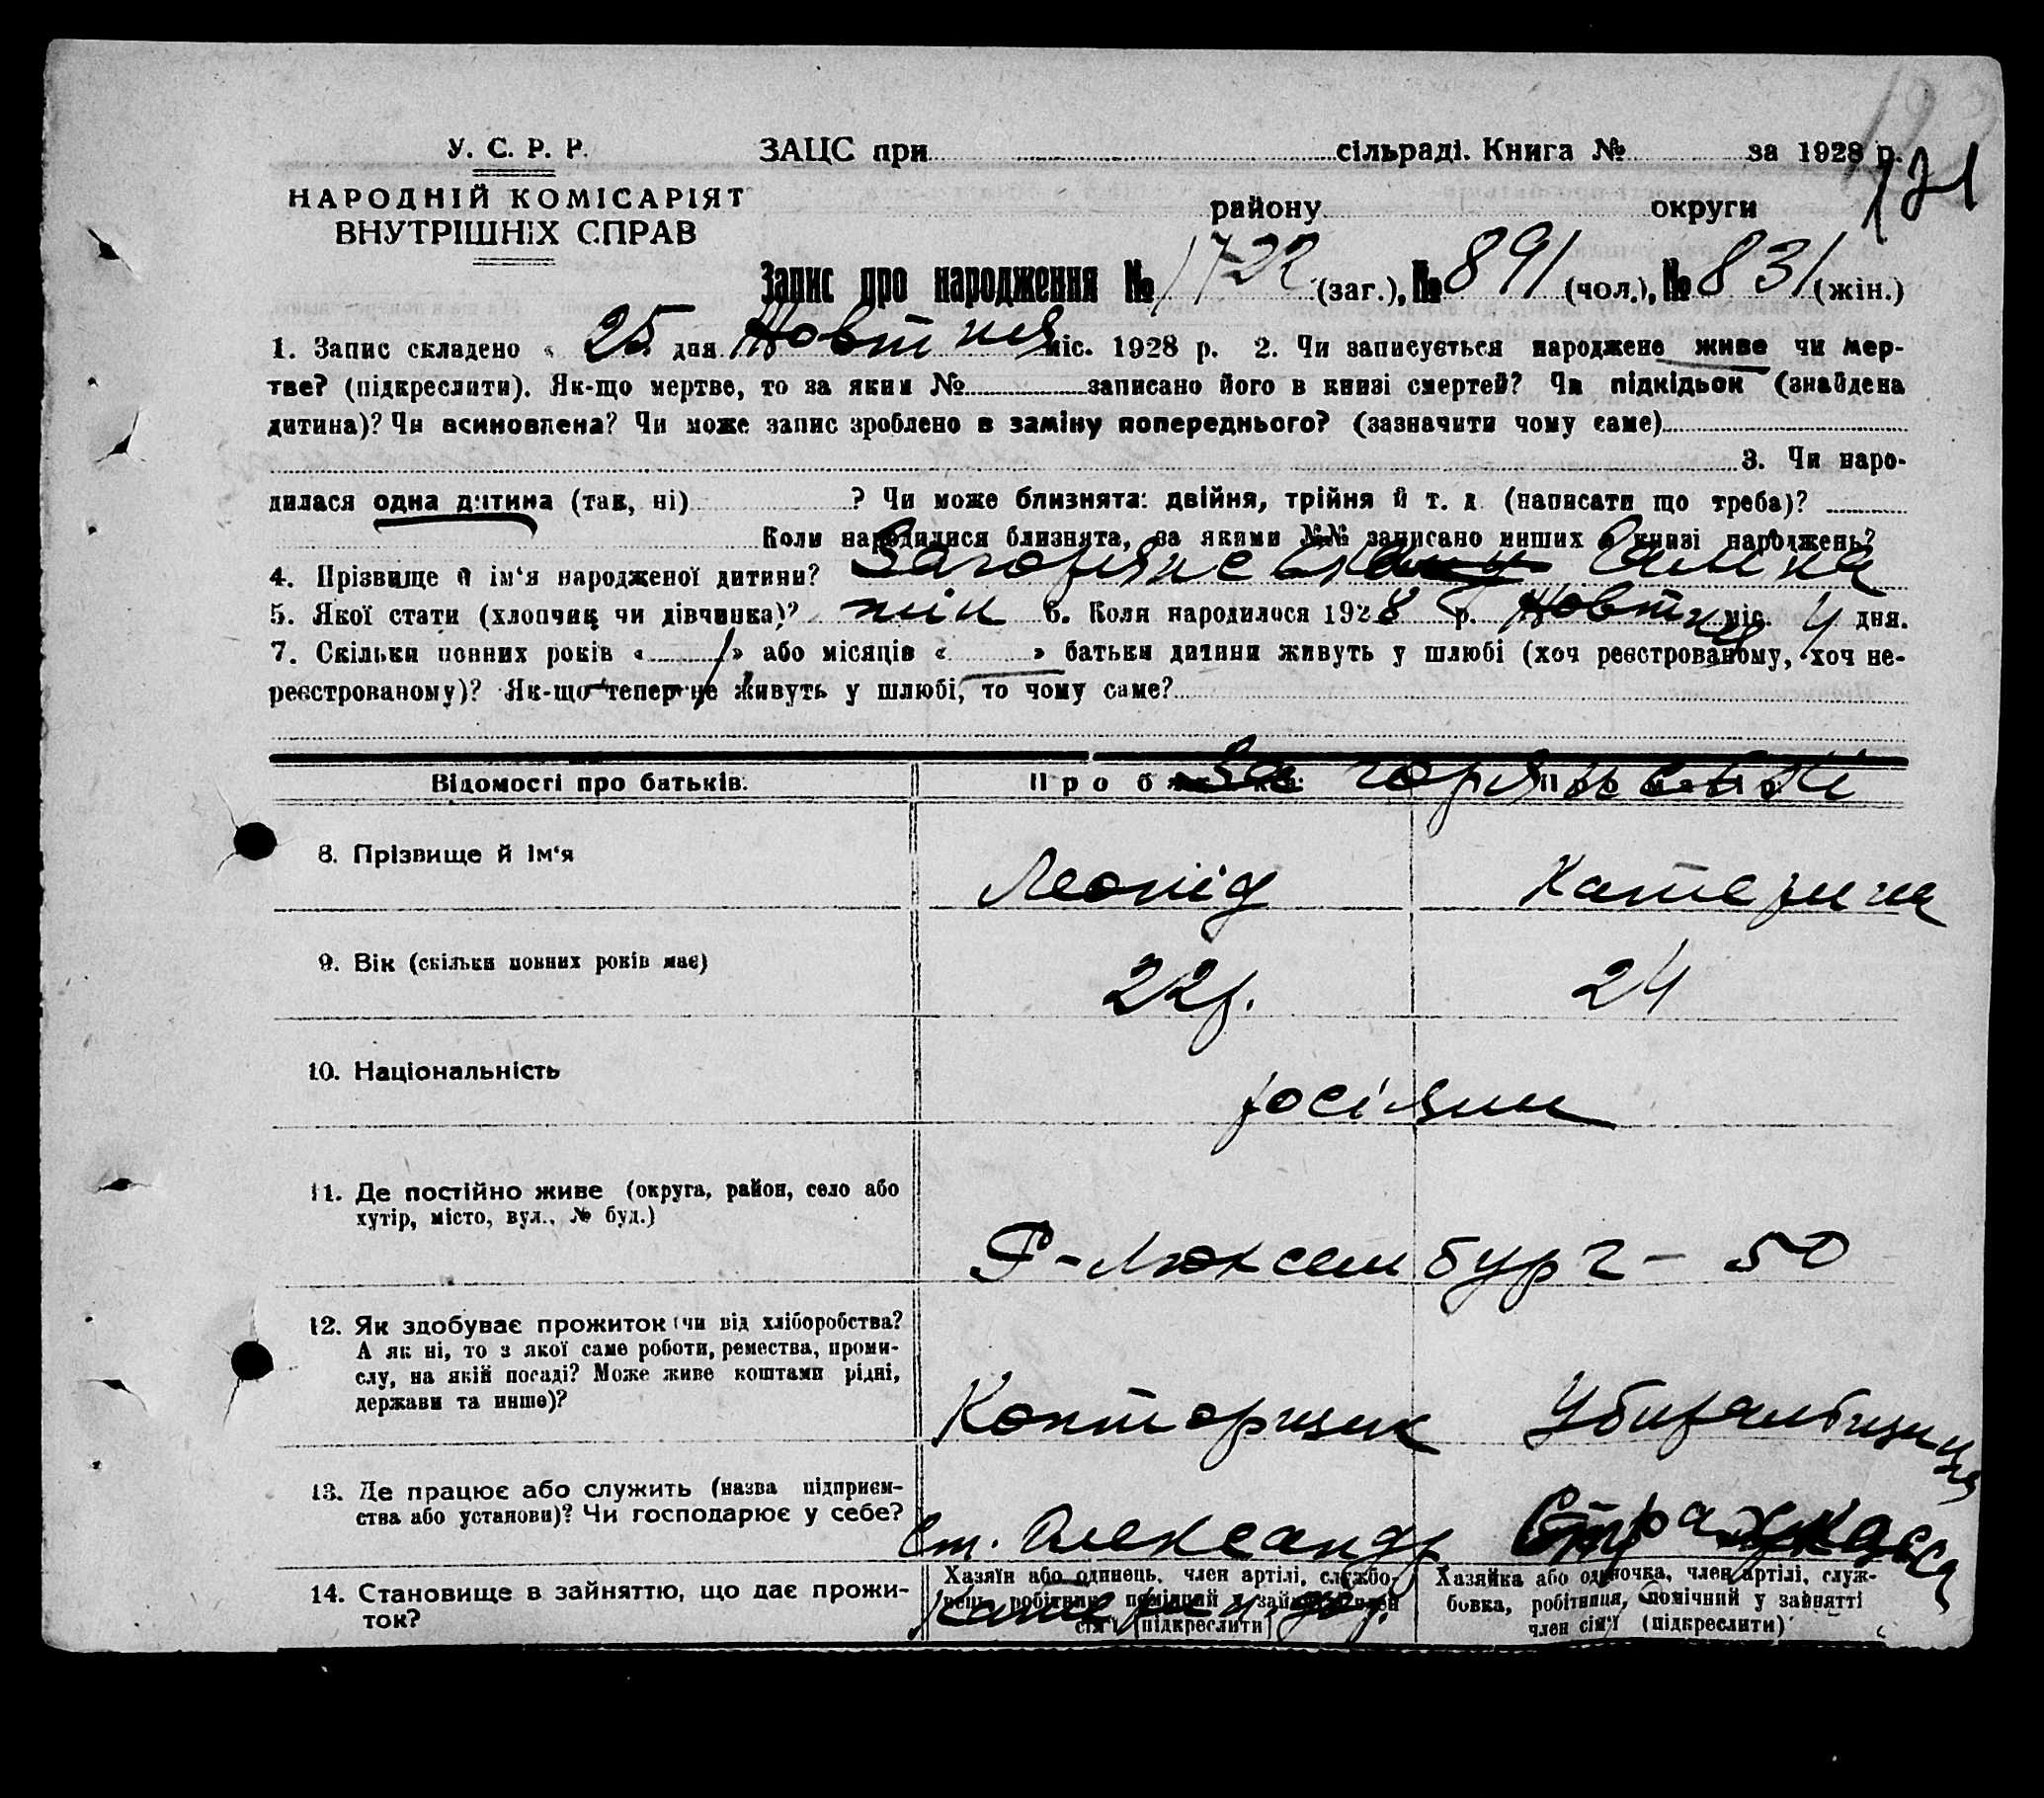 У. С. Р. Р.
НАРОДНІЙ КОМІСАРІЯТ
ВНУТРІШНІХ СПРАВ
ЗАЦС при сільраді. Книга № за 1928 р.
121
району округи
Запис про народження № 1722 (заг.), № 891 (чол.), № 831 (жін.)
1. Запис складено « 25 дня Жовтня міс. 1928 р. 2. Чи записується народжене живе чи мер-
тве? (підкреслити). Як-що мертве, то за яким № записано його в книзі смертей? Чи підкідьок (знайдена
дитина)? Чи всиновлена? Чи може запис зроблено в заміну попереднього? (зазначити чому саме)
3. Чи наро-
дилася одна дитина (так, ні) ? Чи може близнята: двійня, трійня й т. д. (написати що треба)?
Коли народилися близнята, за якими №№ записано инших в книзі народжень?
4. Прізвище й ім‘я народженої дитини? Галина
5. Якої стати (хлопчик чи дівчинка)? жін 6. Коли народилося 1928 р. Жовтня міс. 4 дня.
7. Скільки повних років « 1 » або місяців « » батьки дитини живуть у шлюбі (хоч реєстрованому, хоч не-
реєстрованому)? Як-що тепер не живуть у шлюбі, то чому саме?
Відомості про батьків. Про батька: Про матір:
Загорянські
8. Прізвище й ім‘я Леонід Катерина
9. Вік (скільки повних років має) 22р. 24
10. Національність росіяни
11. Де постійно живе (округа, район, село або
хутір, місто, вул., № буд.)
Р-Люксембург - 50
12. Як здобуває прожиток (чи від хліборобства?
А як ні, то з якої саме роботи, ремества, проми-
слу, на якій посаді? Може живе коштами рідні,
держави та инше)?
Конторщик Убиральщиця
13. Де працює або служить (назва підприєм-
ства або установи)? Чи господарює у себе?
Ст. Александр Страхкаса
14. Становище в зайняттю, що дає прожи-
ток?
Хазяїн або одинець, член артілі, службо-
вець, робітник, помічний у зайнятті член
сім‘ї (підкреслити)
Хазяйка або одиночка, член артілі, служ-
бовка, робітниця, помічний у зайнятті
член сім‘ї (підкреслити)